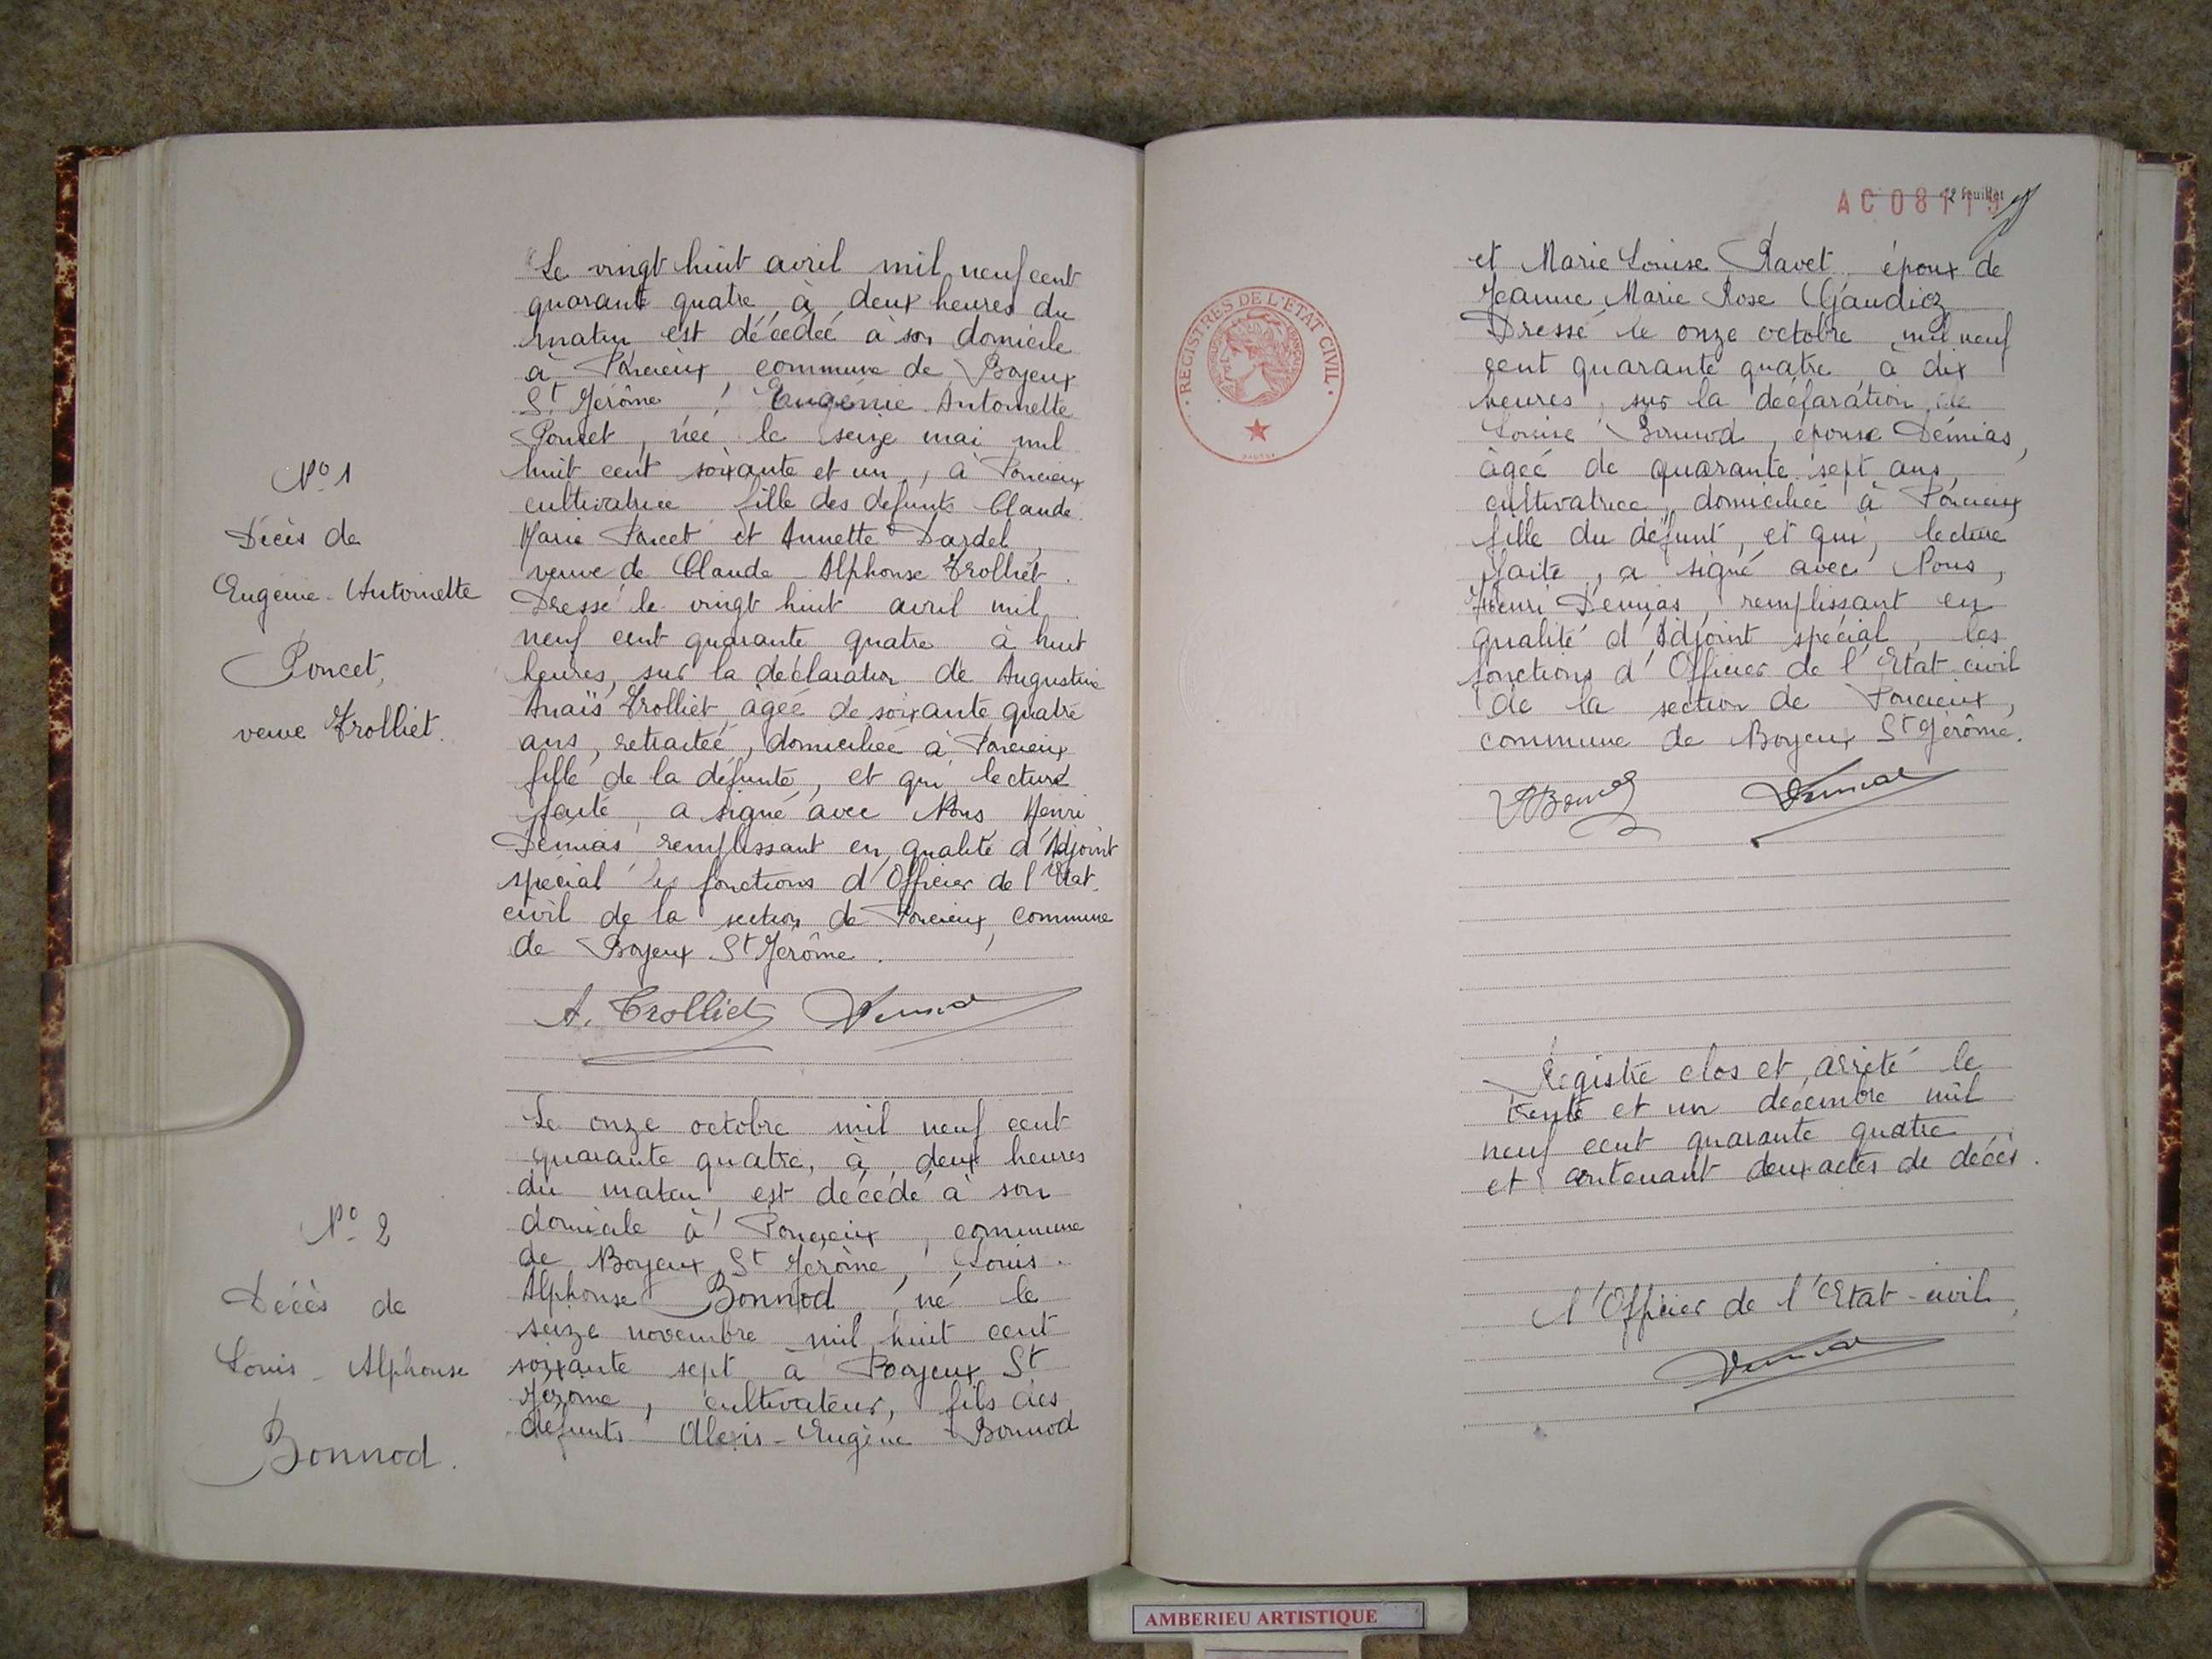 Le vingt huit avril mil neuf cent
quarante quatre, à deux heures du
matin est décédée à son domicile
à Poncieux commune de Boyeux
St Jérôme, Eugénie Antoinette
Poncet, née le seize mai mil
huit cent soixante et un, à Poncieux
cultivatrice fille des defunts Claude
Marie Poncet et Annette Dardel,
veuve de Claude-Alphonse Trolliet.
Dressé le vingt huit avril mil
neuf cent quarante quatre à huit
heures, sur la déclaration de Augustine
Anaïs Trolliet âgée de soixante quatre
ans, retraitée, domiciliée à Poncieux
fille de la défunte, et qui lecture
faite, a signé avec Nous Henri
Demias remplissant en qualité d'Adjoint
spécial les fonctions d'Officier de l'Etat
civil de la section de Poncieux, commune
de Boyeux St Jérôme.
A. Trolliet
Nº 1
Décès de
Eugénie-Antoinette
Poncet,
veuve Trolliet.
Le onze octobre mil neuf cent
quarante quatre, à deux heures
du matin est décédé à son
domicile à Poncieux, commune
de Boyeux St Jérôme, Louis
Alphonse Bonnod né le
seize novembre mil huit cent
soixante sept à Boyeux St
Jérome, cultivateur, fils des
défunts Alexis-Eugène Bonnod
Nº 2
Décès de
Louis-Alphonse
Bonnod.
AC 08119
feuillet
et Marie Louise Ravet, époux de
Jeanne Marie Rose Gaudioz
Dressé le onze octobre mil neuf
cent quarante quatre à dix
heures, sur la déclaration de
Louise Bonnod, épouse Démias,
âgée de quarante sept ans,
cultivatrice, domiciliée à Poncieux
fille du défunt, et qui, lecture
faite, a signé avec Nous,
Henri Demias, remplissant en
qualité d'Adjoint spécial, les
fonctions d'Officier de l'Etat civil
de la section de Poncieux,
commune de Boyeux St Jérôme.
Registre clos et arrêté le
trente et un décembre mil
neuf cent quarante quatre
et contenant deux actes de décès.
l'Officier de l'Etat-civil,
REGISTRES DE L'ÉTAT CIVIL
AMBERIEU ARTISTIQUE